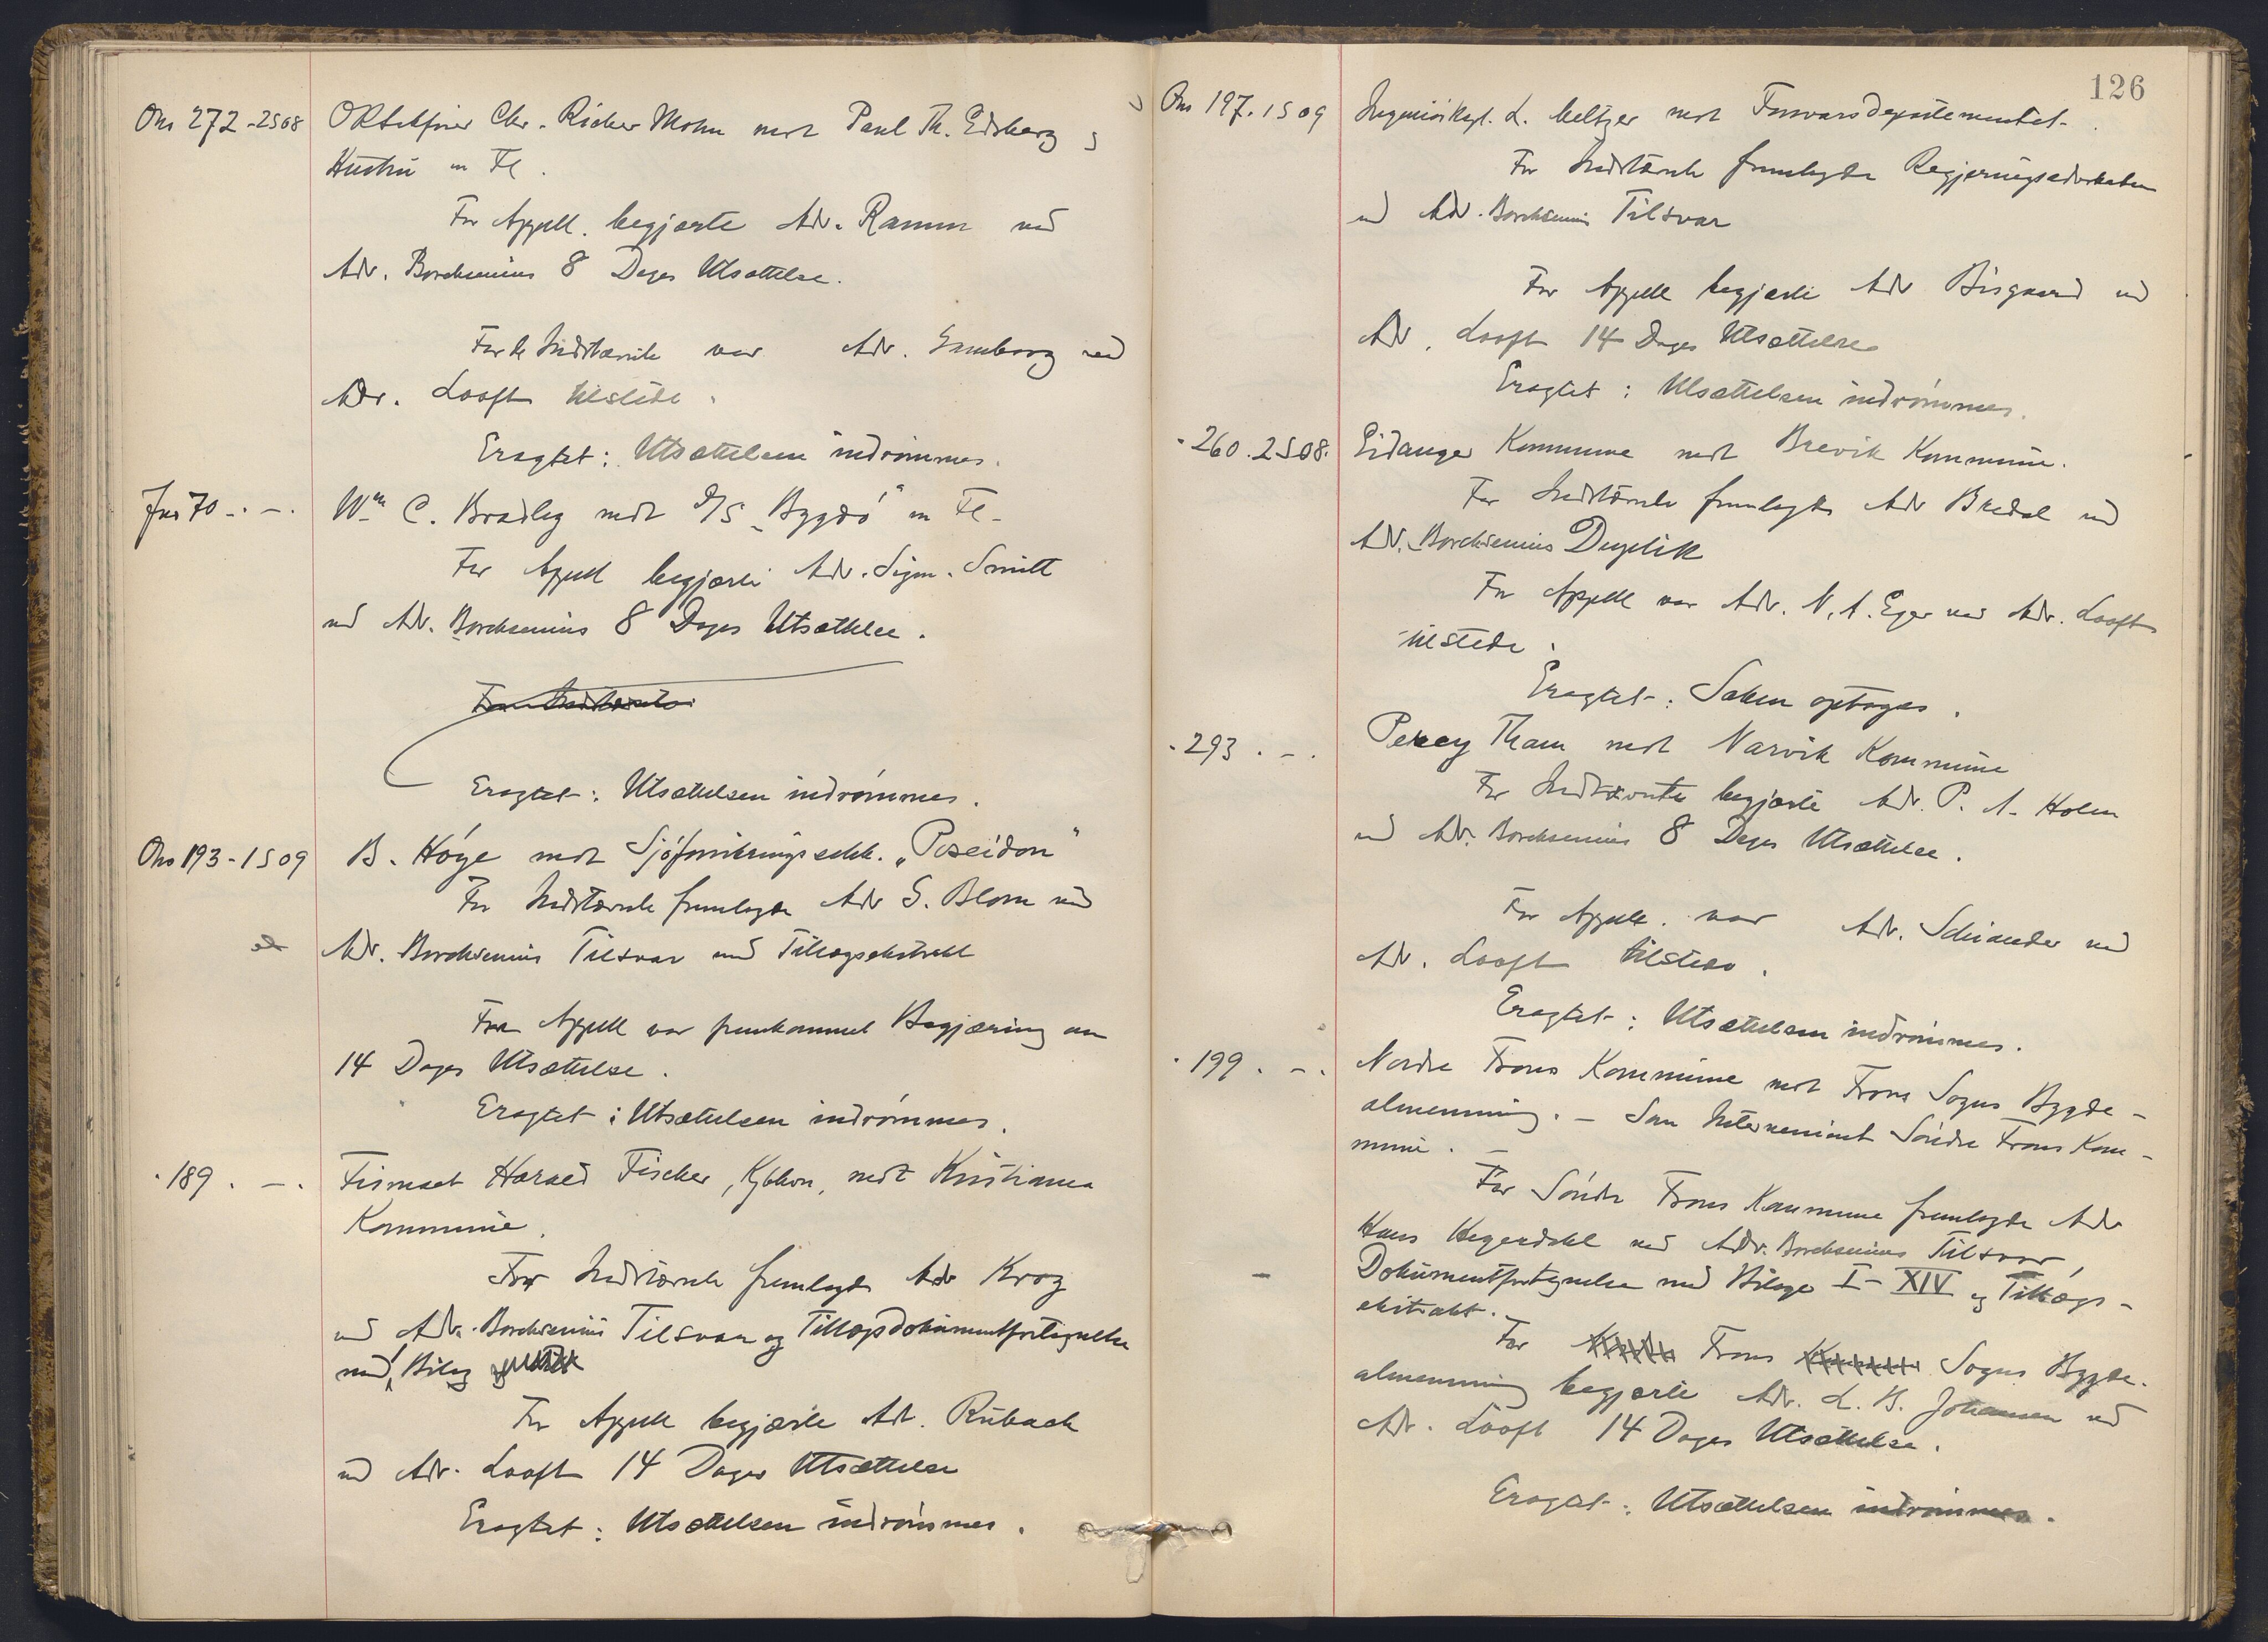 Ons 272 - 2S08 ORSakfører Chr. Richer Mohn mot Paul Th. Edsberg &
Hustru m Fl.
For Appell. begjærte Adv. Ramm ved
Adv. Borchsenius 8 Dages Utsættelse.
For de Indstævnte var Adv. Gamborg ved
Adv. Looft tilstede.
Eragtet: Utsættelsen indrømmes.
Fre 70 - . - . Wm C. Bradley mot D/S "Bygdö" m Fl -
For Appell begjærte Adv. Sigm. Smitt
ved Adv. Borchsenius 8 Dages Utsættelse.
For Indstævnte
Eragtet: Utsættelsen indrømmes.
Ons 193 - 1S09 B. Höye mot Sjøforsikringsselsk. "Poseidon"
For Indstævnte fremlagde Adv S. Blom ved
Adv. Borchsenius Tilsvar med Tillægsekstrakt
For Appell var fremkommet Begjæring om
14 Dages Utsættelse.
Eragtet: Utsættelsen indrømmes.
" 189 . - . Firmaet Harald Fischer, Kjbhvn, mot Kristiania
Kommune.
For Indstævnte fremlagde Adv Krog
ved Adv. Borchsenius Tilsvar og Tillægsdokumentfortegnelse
med Bilag
For Appell begjærte Adv. Rubach
ved Adv. Looft 14 Dages Utsættelse
Eragtet: Utsættelsen indrømmes.
126
Ons 197. 1S09 Ingeniörkapt. L. Meltzer mot Forsvarsdepartementet.
For Indstævnte fremlagde Regjeringsadvokaten
ved Adv. Borchsenius Tilsvar
For Appell begjærte Adv Bisgaard ved
Adv. Looft 14 Dages Utsættelse
Eragtet: Utsættelsen indrømmes.
" 260. 2S08. Eidanger Kommune mot Brevik Kommune.
For Indstævnte fremlagde Adv Bredal ved
Adv. Borchsenius Duplik
For Appell var Adv. N. A. Eger ved Adv. Looft
tilstede.
Eragtet: Saken optages.
" 293 . - . Percy Tham mot Narvik Kommune
For Indstævnte begjærte Adv. P. A. Holm
ved Adv. Borchsenius 8 Dages Utsættelse.
For Appell. var Adv. Schiander ved
Adv. Looft tilstede.
Eragtet: Utsættelsen indrømmes.
" 199 . - . Nordre Frons Kommune mot Frons Sogns Bygde-
almenning. - Som Intervenient Söndre Frons Kom-
mune. -
For Söndre Frons Kommune fremlagde Adv
Hans Hegerdahl ved Adv. Borchsenius Tilsvar,
Dokumentfortegnelse med Bilage I - XIV og Tillægs-
ekstrakt.
For Frons Sogns Bygde-
almenning begjærte Adv. L. B. Johansen ved
Adv. Looft 14 Dages Utsættelse.
Eragtet: Utsættelsen indrømmes.